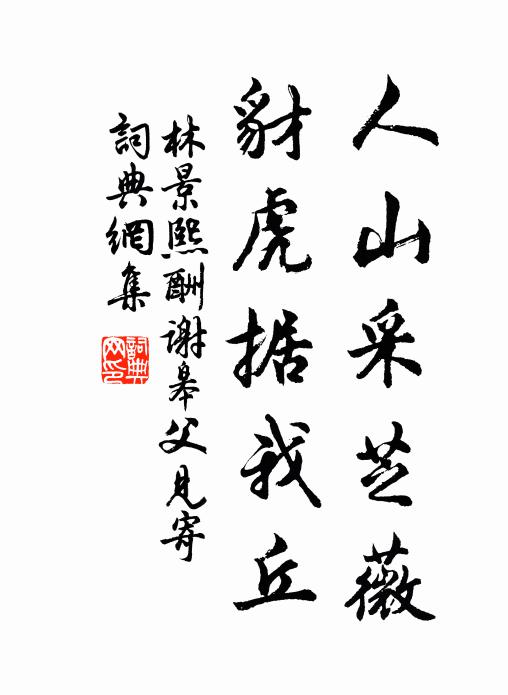 人山采芝薇
豺虎据我丘
林景熙酬谢皋父見寄
詞典網集
詞典網印